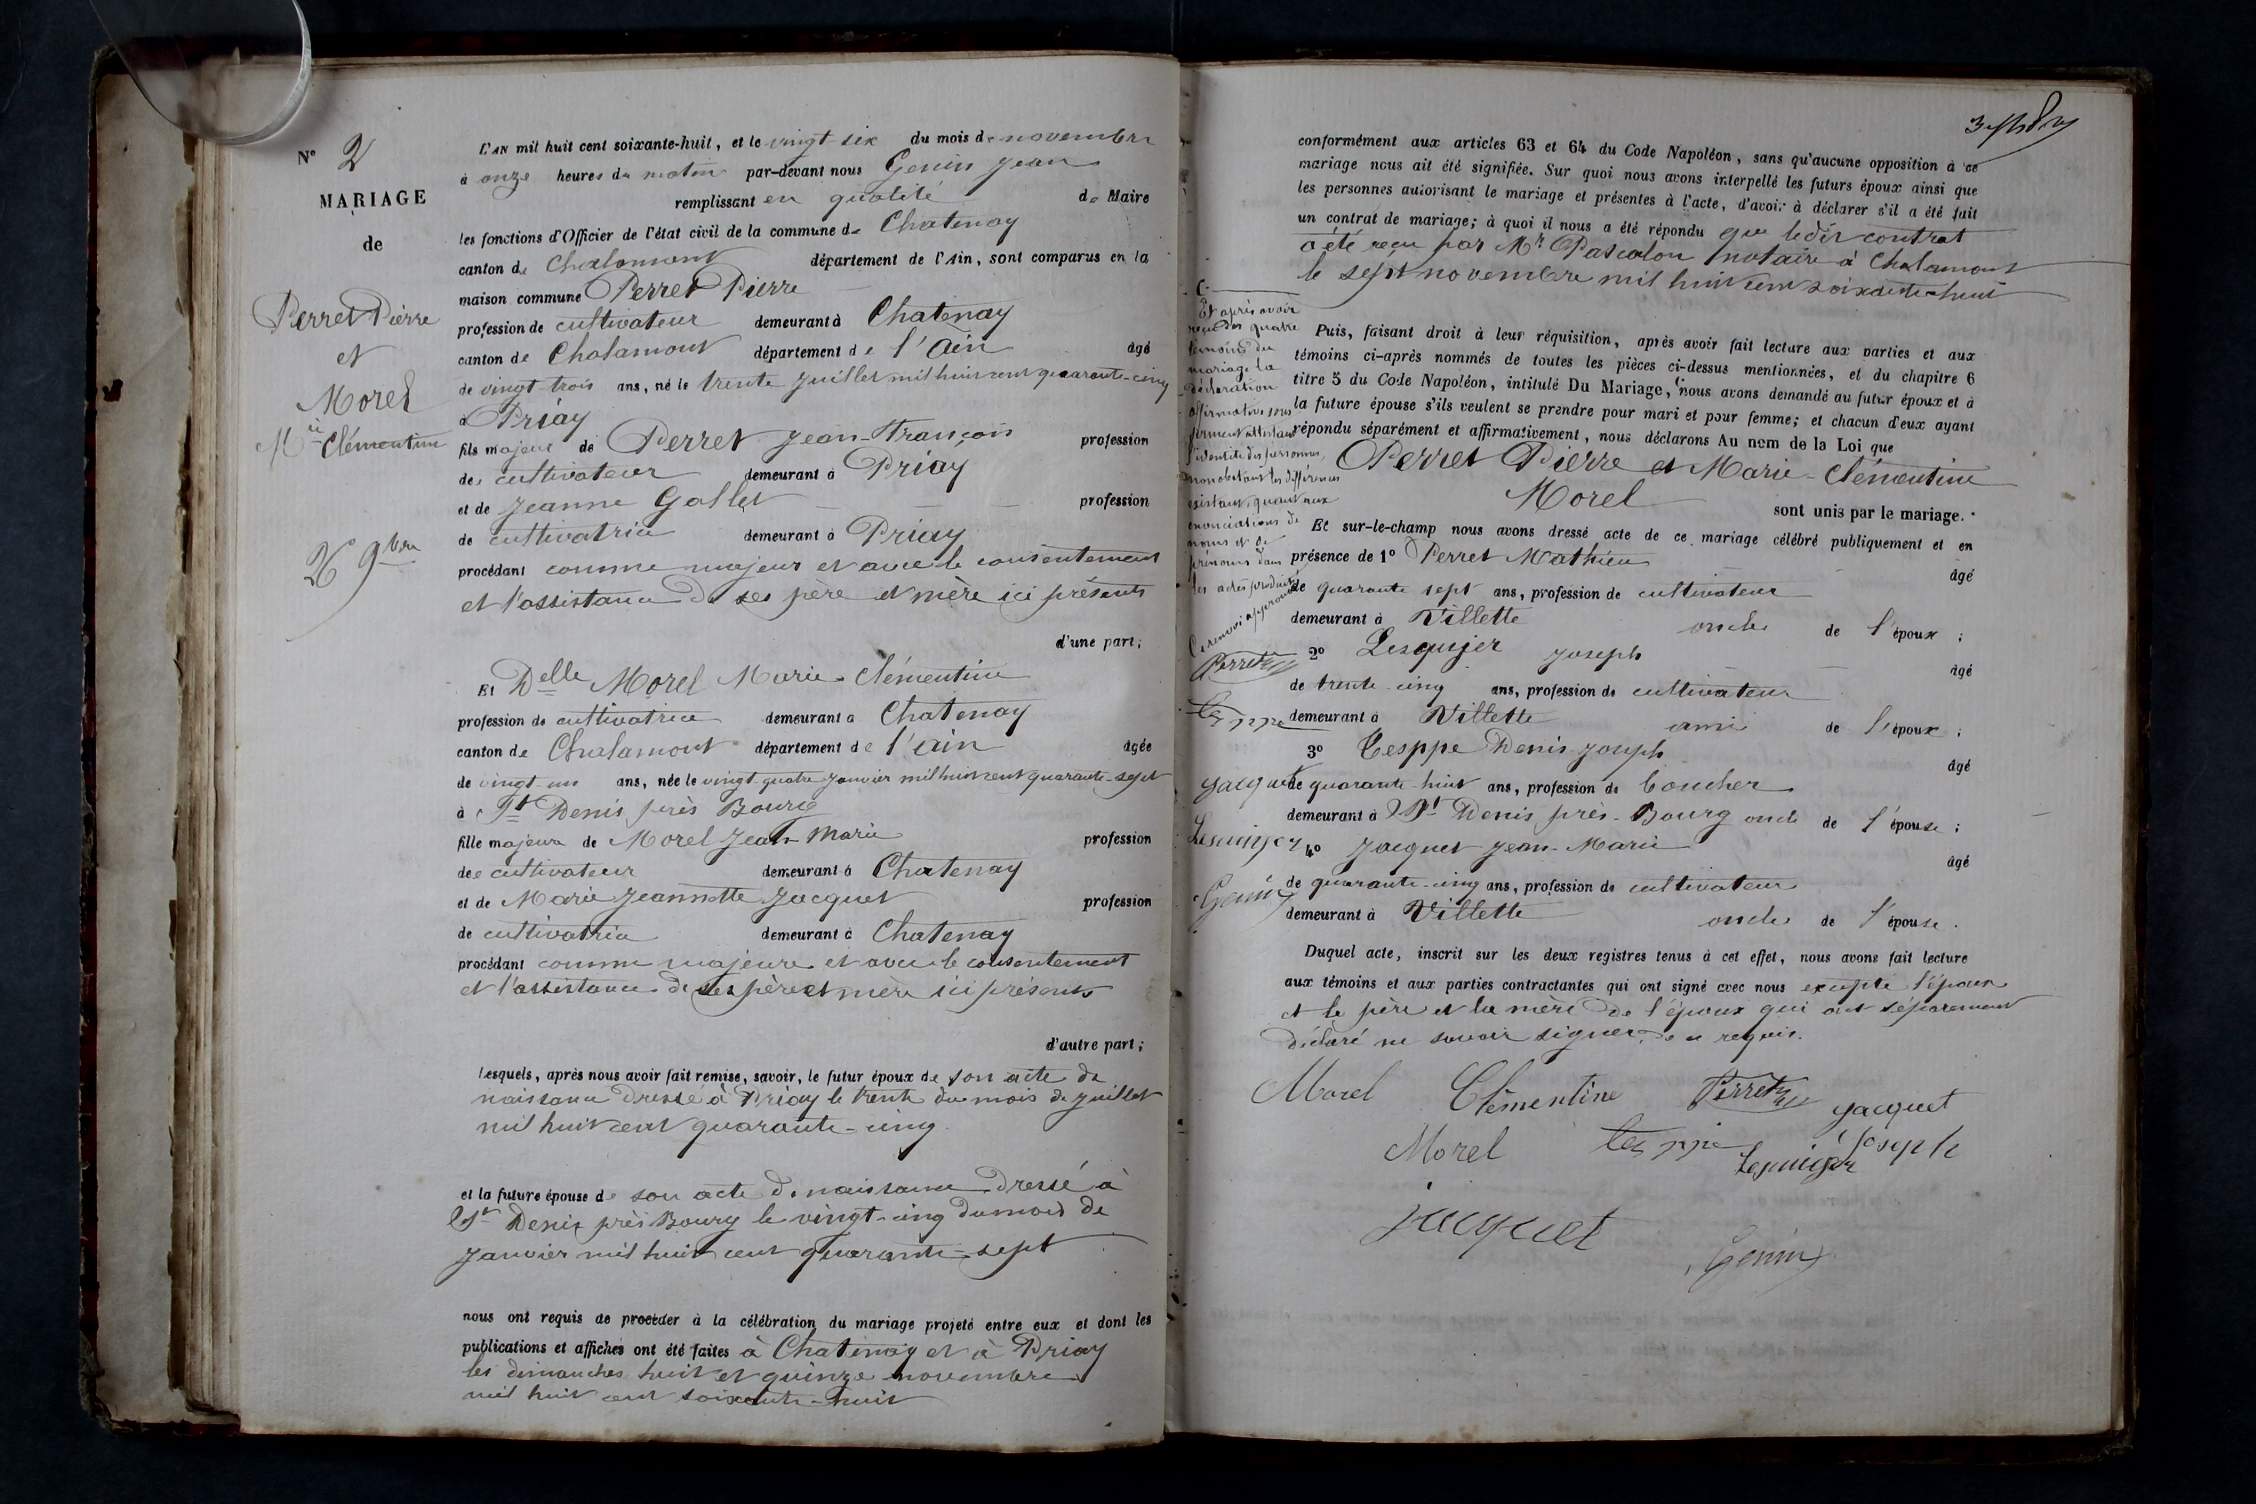 N° 2
MARIAGE
de
Perret Pierre
et
Morel
Mie Clémentine
26 9bre
L'AN mil huit cent soixante-huit, et le vingt six du mois de novembre
à onze heures du matin par-devant nous Genin Jean
remplissant en qualité de Maire
les fonctions d'Officier de l'état civil de la commune de Chatenay
canton de Chalamont département de l'Ain, sont comparus en la
maison commune Perret Pierre
profession de cultivateur demeurant à Chatenay
canton de Chalamont département de l'Ain âgé
de vingt-trois ans, né le trente juillet mil huit cent quarante-cinq
à Priay
fils majeur de Perret Jean-François profession
de cultivateur demeurant à Priay
et de Jeanne Gallet profession
de cultivatrice demeurant à Priay
procédant comme majeur et avec le consentement
et l'assistance de ses père et mère ici présents
d'une part;
Et Delle Morel Marie Clémentine
profession de cultivatrice demeurant à Chatenay
canton de Chalamont département de l'Ain âgée
de vingt-un ans, née le vingt quatre janvier mil huit cent quarante-sept
à St Denis près Bourg
fille majeure de Morel Jean Marie profession
de cultivateur demeurant à Chatenay
et de Marie Jeannette Jacquet profession
de cultivatrice demeurant à Chatenay
procédant comme majeure et avec le consentement
et l'assistance de ses père et mère ici présents
d'autre part;
lesquels, après nous avoir fait remise, savoir, le futur époux de son acte de
naissance dressé à Priay le trente du mois de juillet
mil huit cent quarante-cinq
et la future épouse de son acte de naissance dressé à
St Denis près Bourg le vingt-cinq du mois de
janvier mil huit cent quarante-sept
nous ont requis de procéder à la célébration du mariage projeté entre eux et dont les
publications et affiches ont été faites à Chatenay et à Priay
les dimanches huit et quinze novembre
mil huit cent soixante-huit
conformément aux articles 63 et 64 du Code Napoléon, sans qu'aucune opposition à ce
mariage nous ait été signifiée. Sur quoi nous avons interpellé les futurs époux ainsi que
les personnes autorisant le mariage et présentes à l'acte, d'avoir à déclarer s'il a été fait
un contrat de mariage; à quoi il nous a été répondu que ledit contrat
a été reçu par Mr Pascalon notaire à Chalamont
le sept novembre mil huit cent soixante-huit
Et après avoir
reçu des quatre
témoins du
mariage la
déclaration
affirmative sous
serment attestant
l'identité des personnes,
nonobstant les différences
existant, quant aux
énonciations de
noms et de
prénoms dans
les actes produits
Ce renvoi approuvé
Perret
Tesppe
Jacquet
Lesquijer
Genin
Puis, faisant droit à leur réquisition, après avoir fait lecture aux parties et aux
témoins ci-après nommés de toutes les pièces ci-dessus mentionnées, et du chapitre 6
titre 5 du Code Napoléon, intitulé Du Mariage, nous avons demandé au futur époux et à
la future épouse s'ils veulent se prendre pour mari et pour femme; et chacun d'eux ayant
répondu séparément et affirmativement, nous déclarons Au nom de la Loi que
Perret Pierre et Marie-Clémentine
Morel
sont unis par le mariage.
Et sur-le-champ nous avons dressé acte de ce mariage célébré publiquement et en
présence de 1° Perret Mathieu âgé
de quarante sept ans, profession de cultivateur
demeurant à Villette oncle de l'époux;
2° Lesquijer Joseph âgé
de trente-cinq ans, profession de cultivateur
demeurant à Villette ami de l'époux;
3° Tesppe Denis Joseph âgé
de quarante-huit ans, profession de boucher
demeurant à St Denis près-Bourg oncle de l'épouse;
4° Jacquet Jean-Marie âgé
de quarante-cinq ans, profession de cultivateur
demeurant à Villette oncle de l'épouse.
Duquel acte, inscrit sur les deux registres tenus à cet effet, nous avons fait lecture
aux témoins et aux parties contractantes qui ont signé avec nous excepté l'époux
et le père et la mère de l'époux qui ont séparément
déclaré ne savoir signer, de ce requis.
Morel Clémentine Perret Jacquet
Morel Tesppe Lesquijer Joseph
Jacquet
Genin